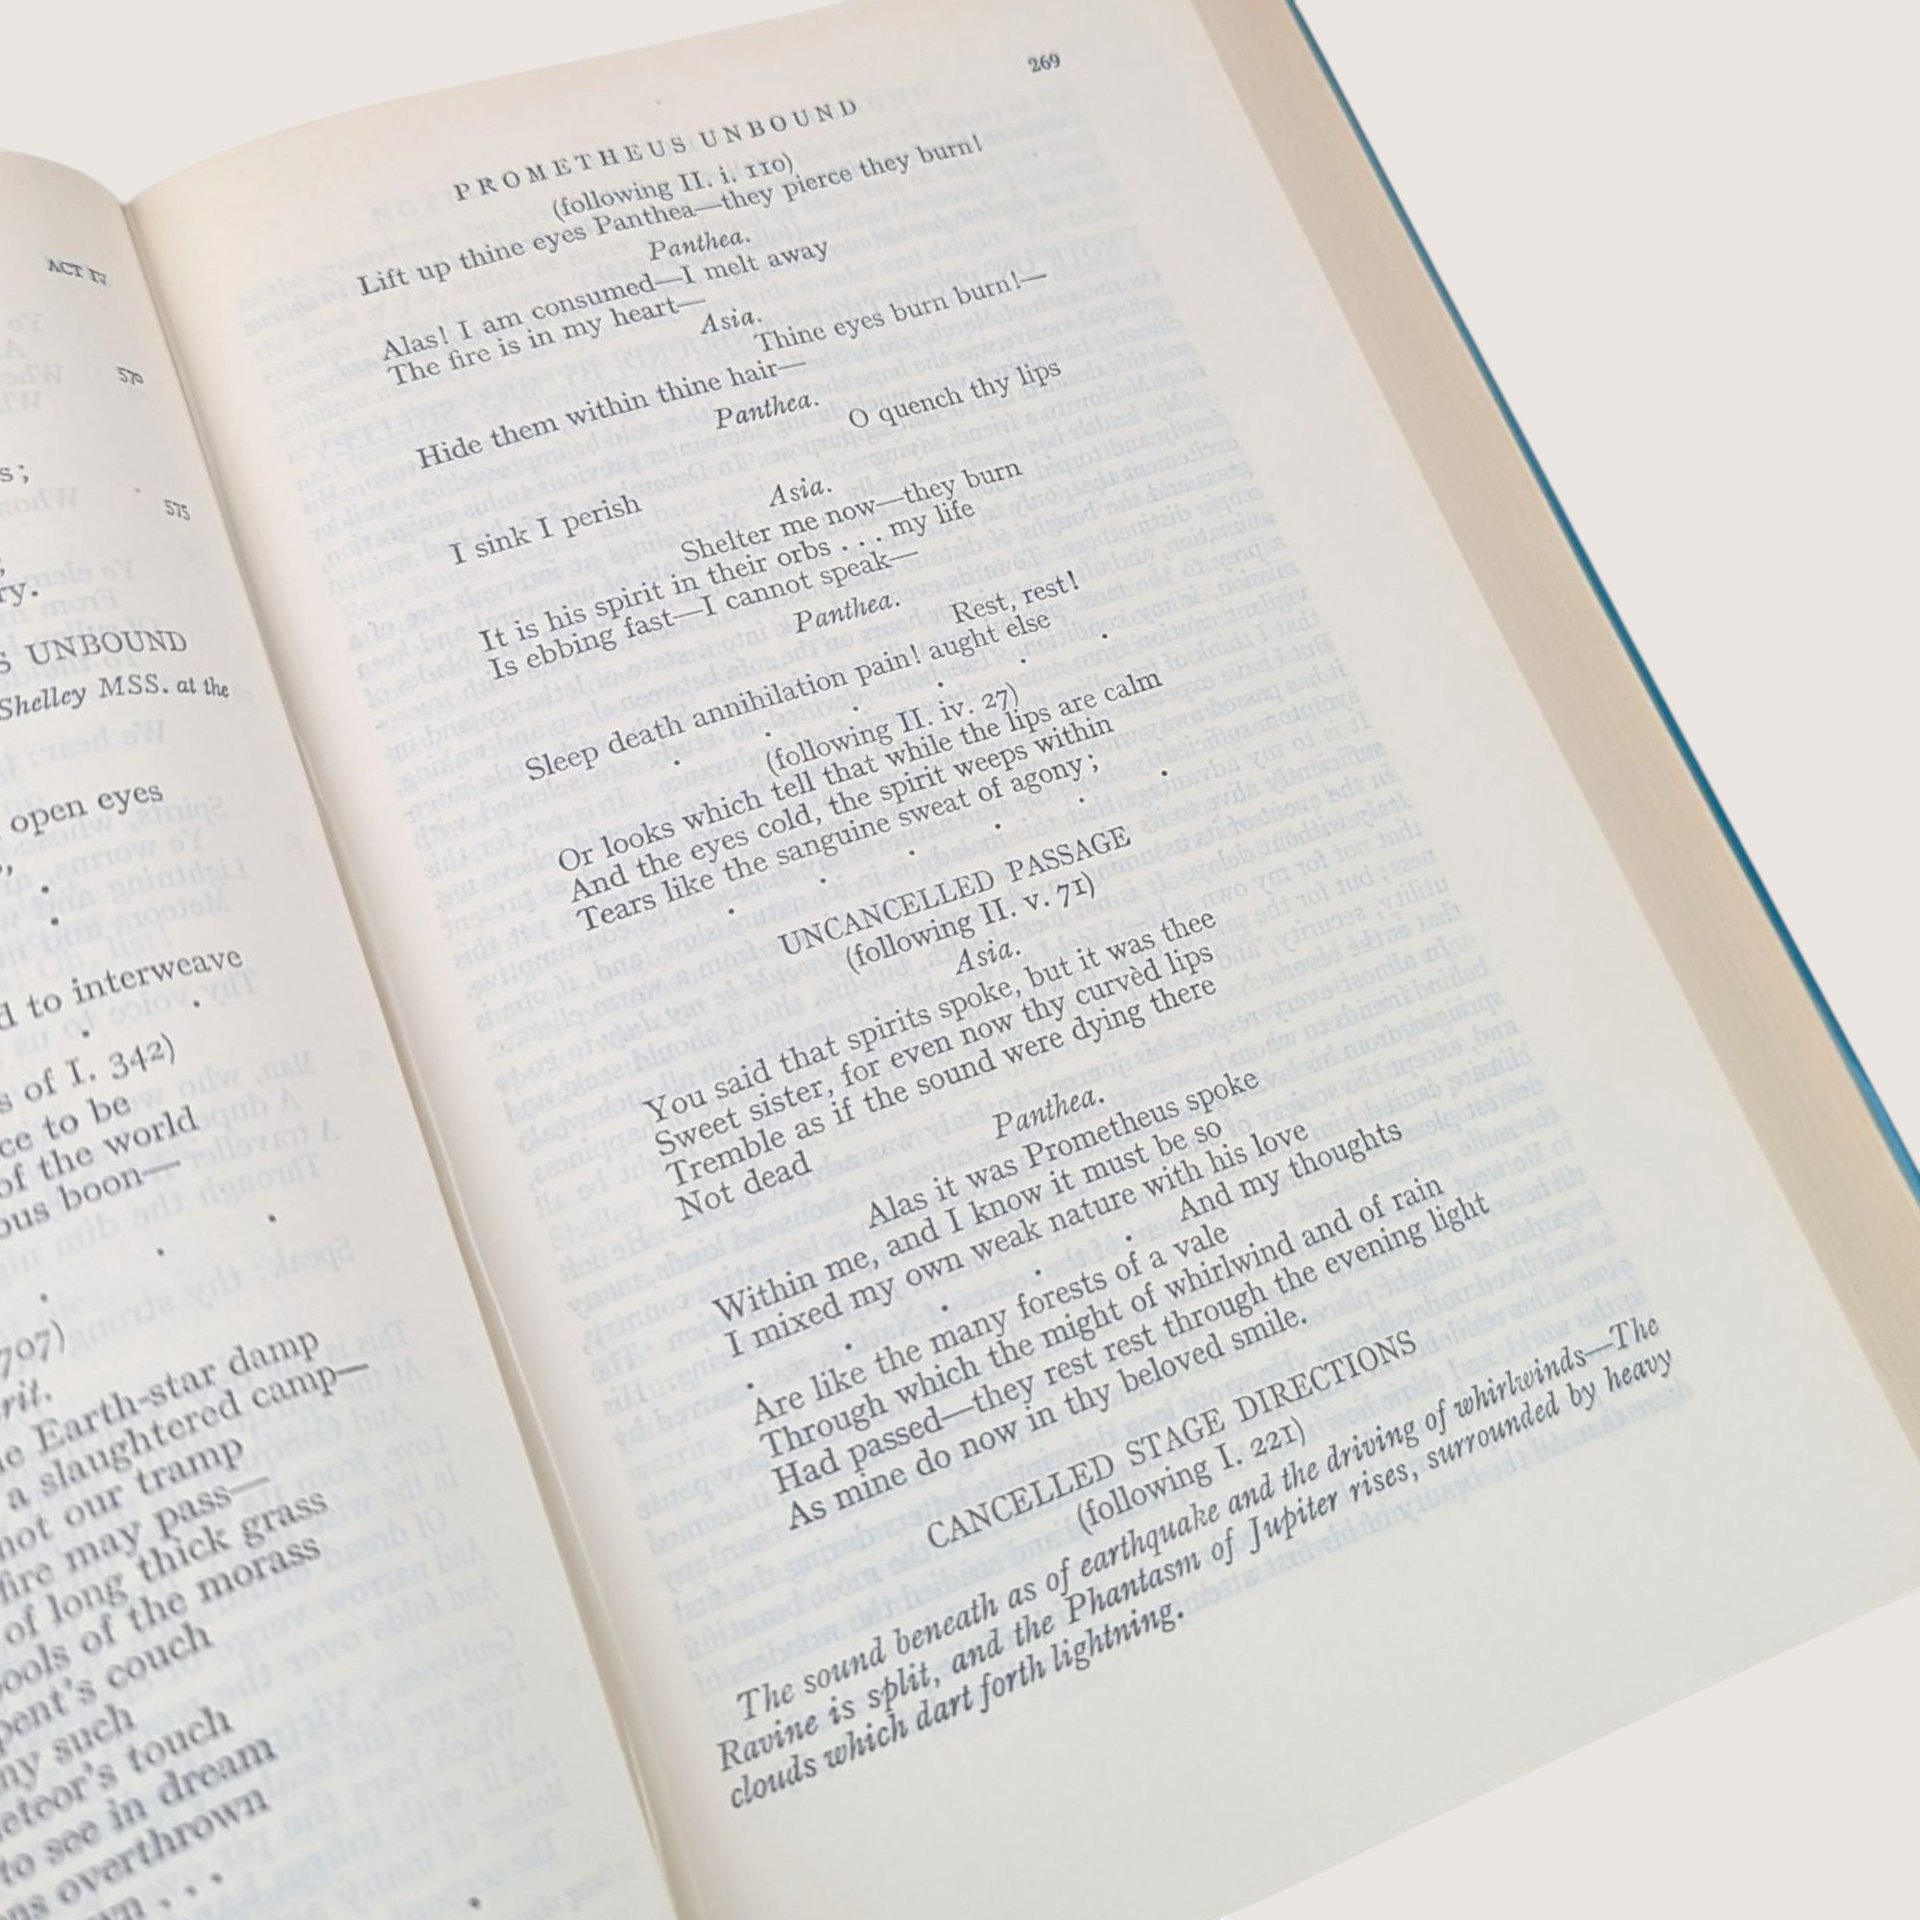 ACT IV
570
s;
575
ry.
S UNBOUND
Shelley MSS. at the
open eyes
d to interweave
s of I. 342)
ce to be
of the world
ous boon—
707)
rit.
e Earth-star damp
a slaughtered camp—
not our tramp
fire may pass—
of long thick grass
ools of the morass
pent's couch
ny such
eteor's touch
to see in dream
ns overthrown
wn . . .
269
PROMETHEUS UNBOUND
(following II. i. 110)
Lift up thine eyes Panthea—they pierce they burn!
Panthea.
Alas! I am consumed—I melt away
The fire is in my heart—
Asia.
Thine eyes burn burn!—
Hide them within thine hair—
Panthea.
O quench thy lips
I sink I perish
Asia.
Shelter me now—they burn
It is his spirit in their orbs . . . my life
Is ebbing fast—I cannot speak—
Panthea.
Rest, rest!
Sleep death annihilation pain! aught else
. . . . . .
(following II. iv. 27)
Or looks which tell that while the lips are calm
And the eyes cold, the spirit weeps within
Tears like the sanguine sweat of agony;
. . . . . .
UNCANCELLED PASSAGE
(following II. v. 71)
Asia.
You said that spirits spoke, but it was thee
Sweet sister, for even now thy curvèd lips
Tremble as if the sound were dying there
Not dead
Panthea.
Alas it was Prometheus spoke
Within me, and I know it must be so
I mixed my own weak nature with his love
. . . . . And my thoughts
Are like the many forests of a vale
Through which the might of whirlwind and of rain
Had passed—they rest rest through the evening light
As mine do now in thy beloved smile.
CANCELLED STAGE DIRECTIONS
(following I. 221)
The sound beneath as of earthquake and the driving of whirlwinds—The
Ravine is split, and the Phantasm of Jupiter rises, surrounded by heavy
clouds which dart forth lightning.